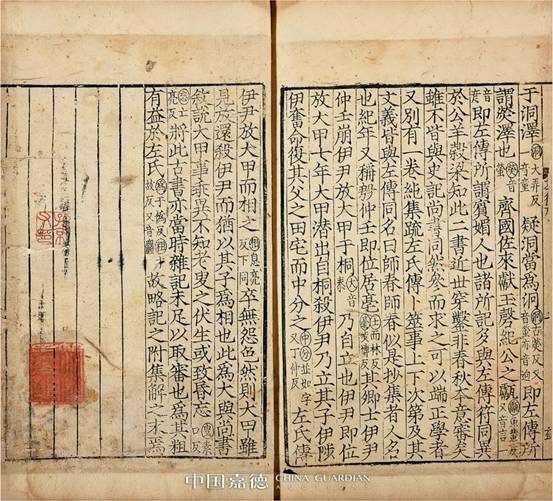 于洞澤洞大弄反音童疑洞當為泂泂古熒反音螢亦音迥即左傳所
謂熒澤也熒音螢齊國佐來獻玉磬紀公之甗甗魚輦反又音言
即左傳所謂賓媚人也諸所記多與左傳符同異
於公羊穀梁知此二書近世穿鑿非春秋本意審矣
雖不皆與史記尚書同然參而求之可以端正學者
又別有一卷純集疏左氏傳卜筮事上下次第及其
文義皆與左傳同名曰師春師春似是抄集者人名
也紀年又稱殷仲壬即位居亳壬而林反亳步博反其卿士伊尹
仲壬崩伊尹放大甲于桐大音泰乃自立也伊尹即位
放大甲七年大甲潛出自桐殺伊尹乃立其子伊陟
伊奮命復其父之田宅而中分之中分並如字又丁仲反左氏傳
伊尹放大甲而相之相息亮反下同卒無怨色然則大甲雖
見放還殺伊尹而猶以其子為相也此為大與尚書
敘說大甲事乖異不知老叟之伏生或致昏忘叟素口反
亮反將此古書亦當時雜記未足以取審也為其粗
有益於左氏為于偽反又音麤故略記之附集解之末焉
中国嘉德 CHINA GUARDIAN